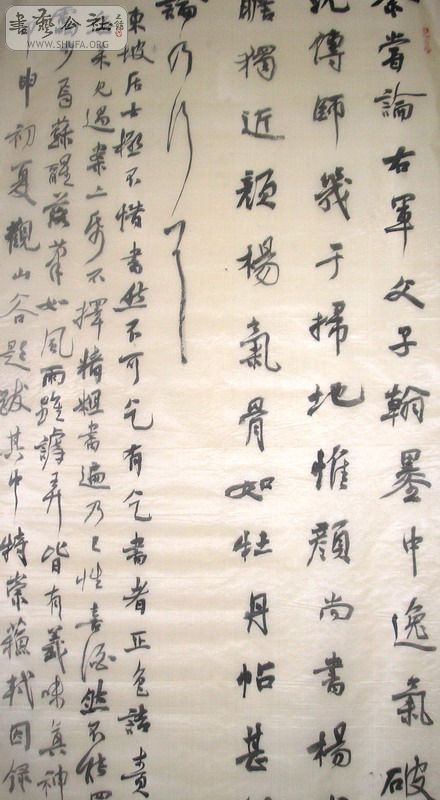 余嘗論右軍父子翰墨中逸氣破
沈傅師幾于掃地惟顏尚書楊
瞻獨近顏楊氣骨如牡丹帖甚
論乃行
東坡居士極不惜書然不可乞有乞書者正色詰責
未見過案上紙不擇精粗書遍乃已性喜酒然不能四
焉蘇醒落筆如風雨雖謔弄皆有義味真神
申初夏觀山谷題跋其中特崇蘇軾因錄
書藝公社
WWW.SHUFA.ORG